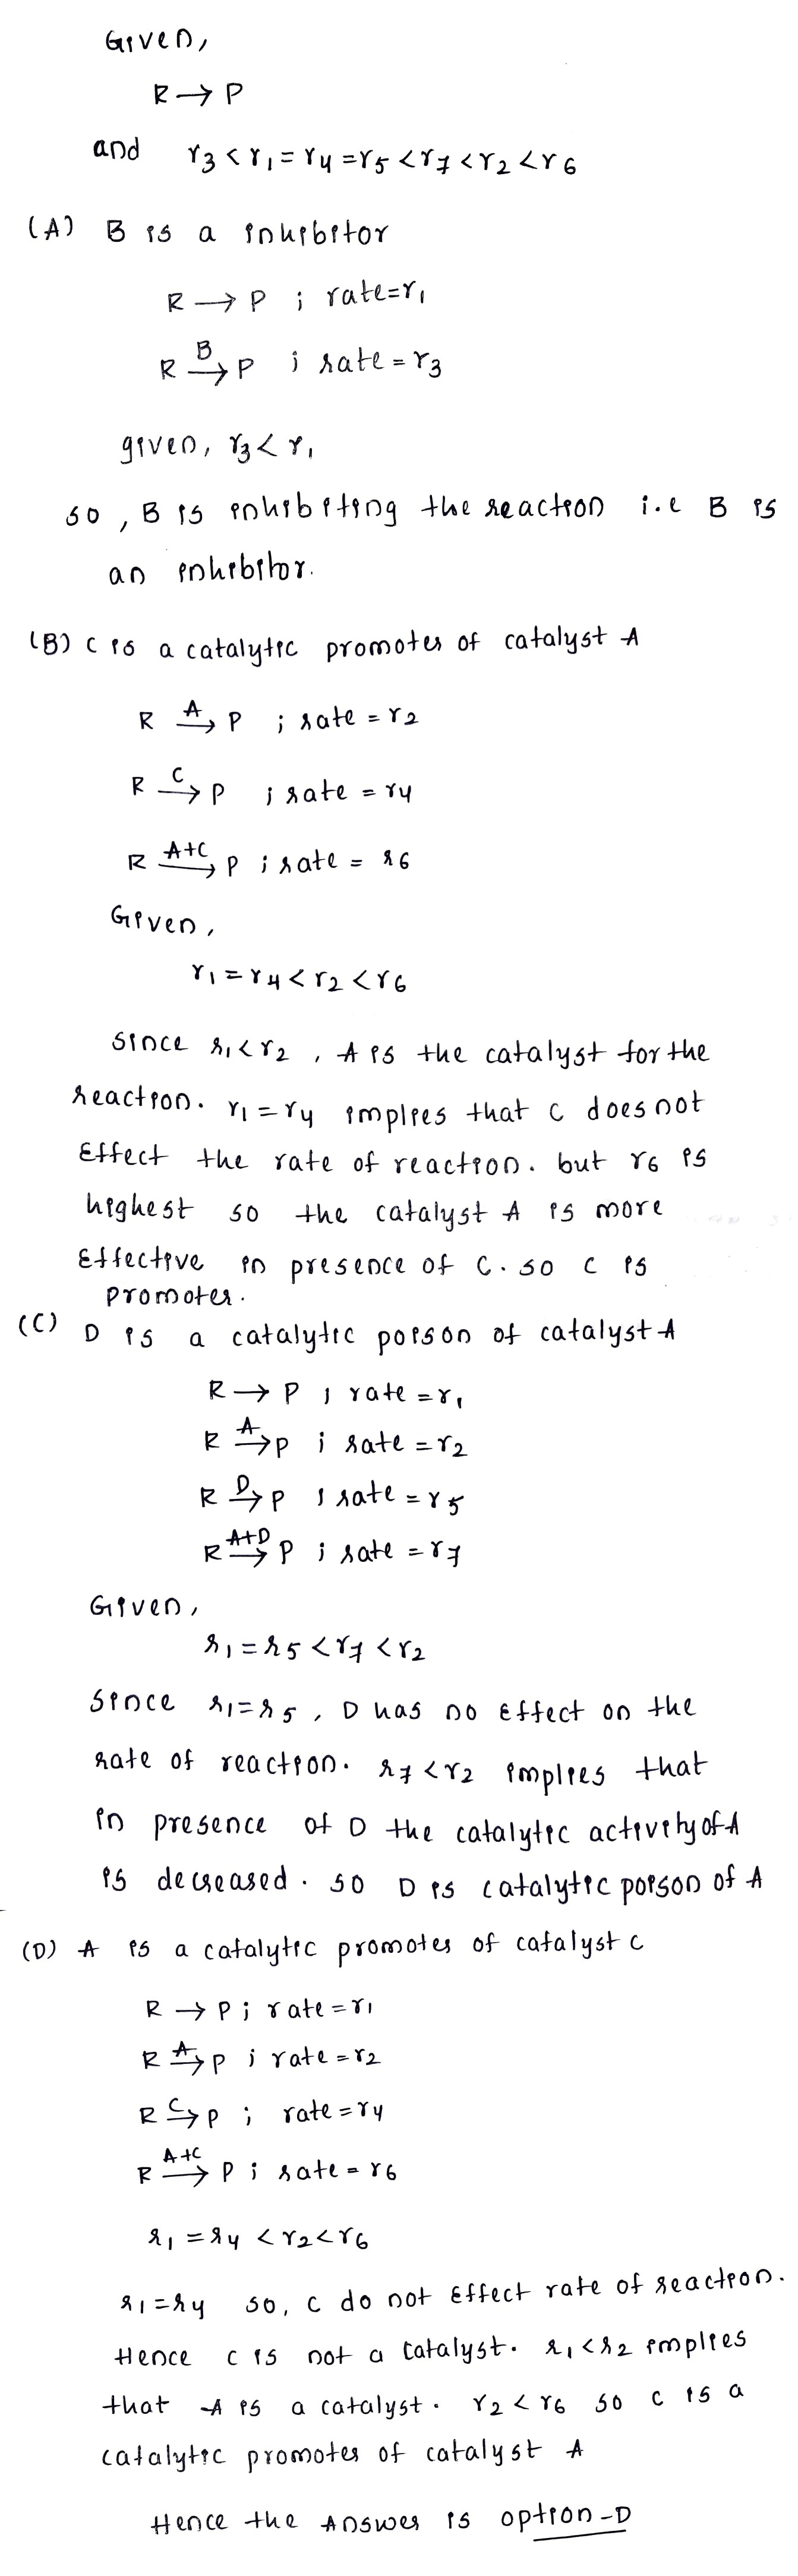 Given,
R → P
and r3 < r1 = r4 = r5 < r7 < r2 < r6
(A) B is a inhibitor
R → P ; rate=r1
R B→ P ; rate = r3
given, r3 < r1
so, B is inhibiting the reaction i.e B is
an inhibitor.
(B) C is a catalytic promoter of catalyst A
R A→ P ; rate = r2
R C→ P ; rate = r4
R A+C→ P ; rate = r6
Given,
r1 = r4 < r2 < r6
since r1 < r2 , A is the catalyst for the
reaction. r1 = r4 implies that C does not
Effect the rate of reaction. but r6 is
highest so the catalyst A is more
Effective in presence of C. so C is
promoter.
(C) D is a catalytic poison of catalyst A
R → P ; rate = r1
R A→ P ; rate = r2
R D→ P ; rate = r5
R A+D→ P ; rate = r7
Given,
r1 = r5 < r7 < r2
since r1 = r5 , D has no Effect on the
rate of reaction. r7 < r2 implies that
in presence of D the catalytic activity of A
is decreased. so D is catalytic poison of A
(D) A is a catalytic promoter of catalyst C
R → P ; rate = r1
R A→ P ; rate = r2
R C→ P ; rate = r4
R A+C→ P ; rate = r6
r1 = r4 < r2 < r6
r1 = r4 so, C do not Effect rate of reaction.
Hence C is not a catalyst. r1 < r2 implies
that A is a catalyst. r2 < r6 so C is a
catalytic promoter of catalyst A
Hence the Answer is option-D